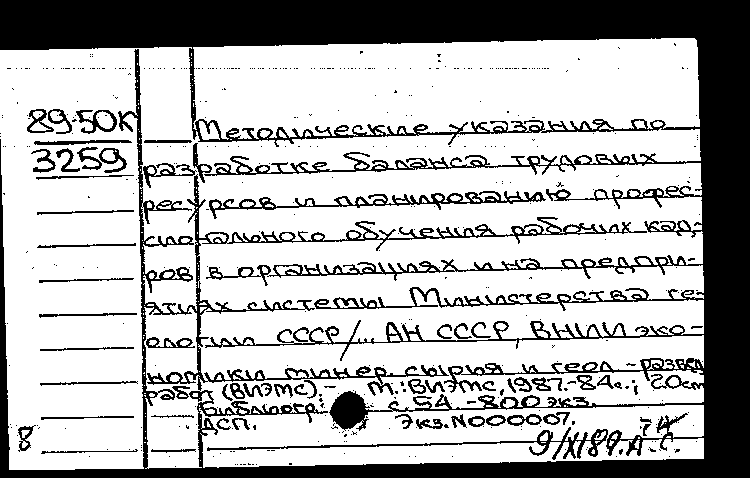 89-50К
3259
Методические указания по
разработке баланса трудовых
ресурсов и планированию профес-
сионального обучения рабочих кад-
ров в организациях и на предпри-
ятиях системы Министерства ге-
ологии СССР/... АН СССР, ВНИИ эко-
номики минер. сырья и геол.-развед.
работ (ВИЭМС). - М.: ВИЭМС, 1987.-84с.; 20см
Библиогр.: с. 54. -800 экз.
ДСП. Экз. N000007.
8
9/XI89. А.С.